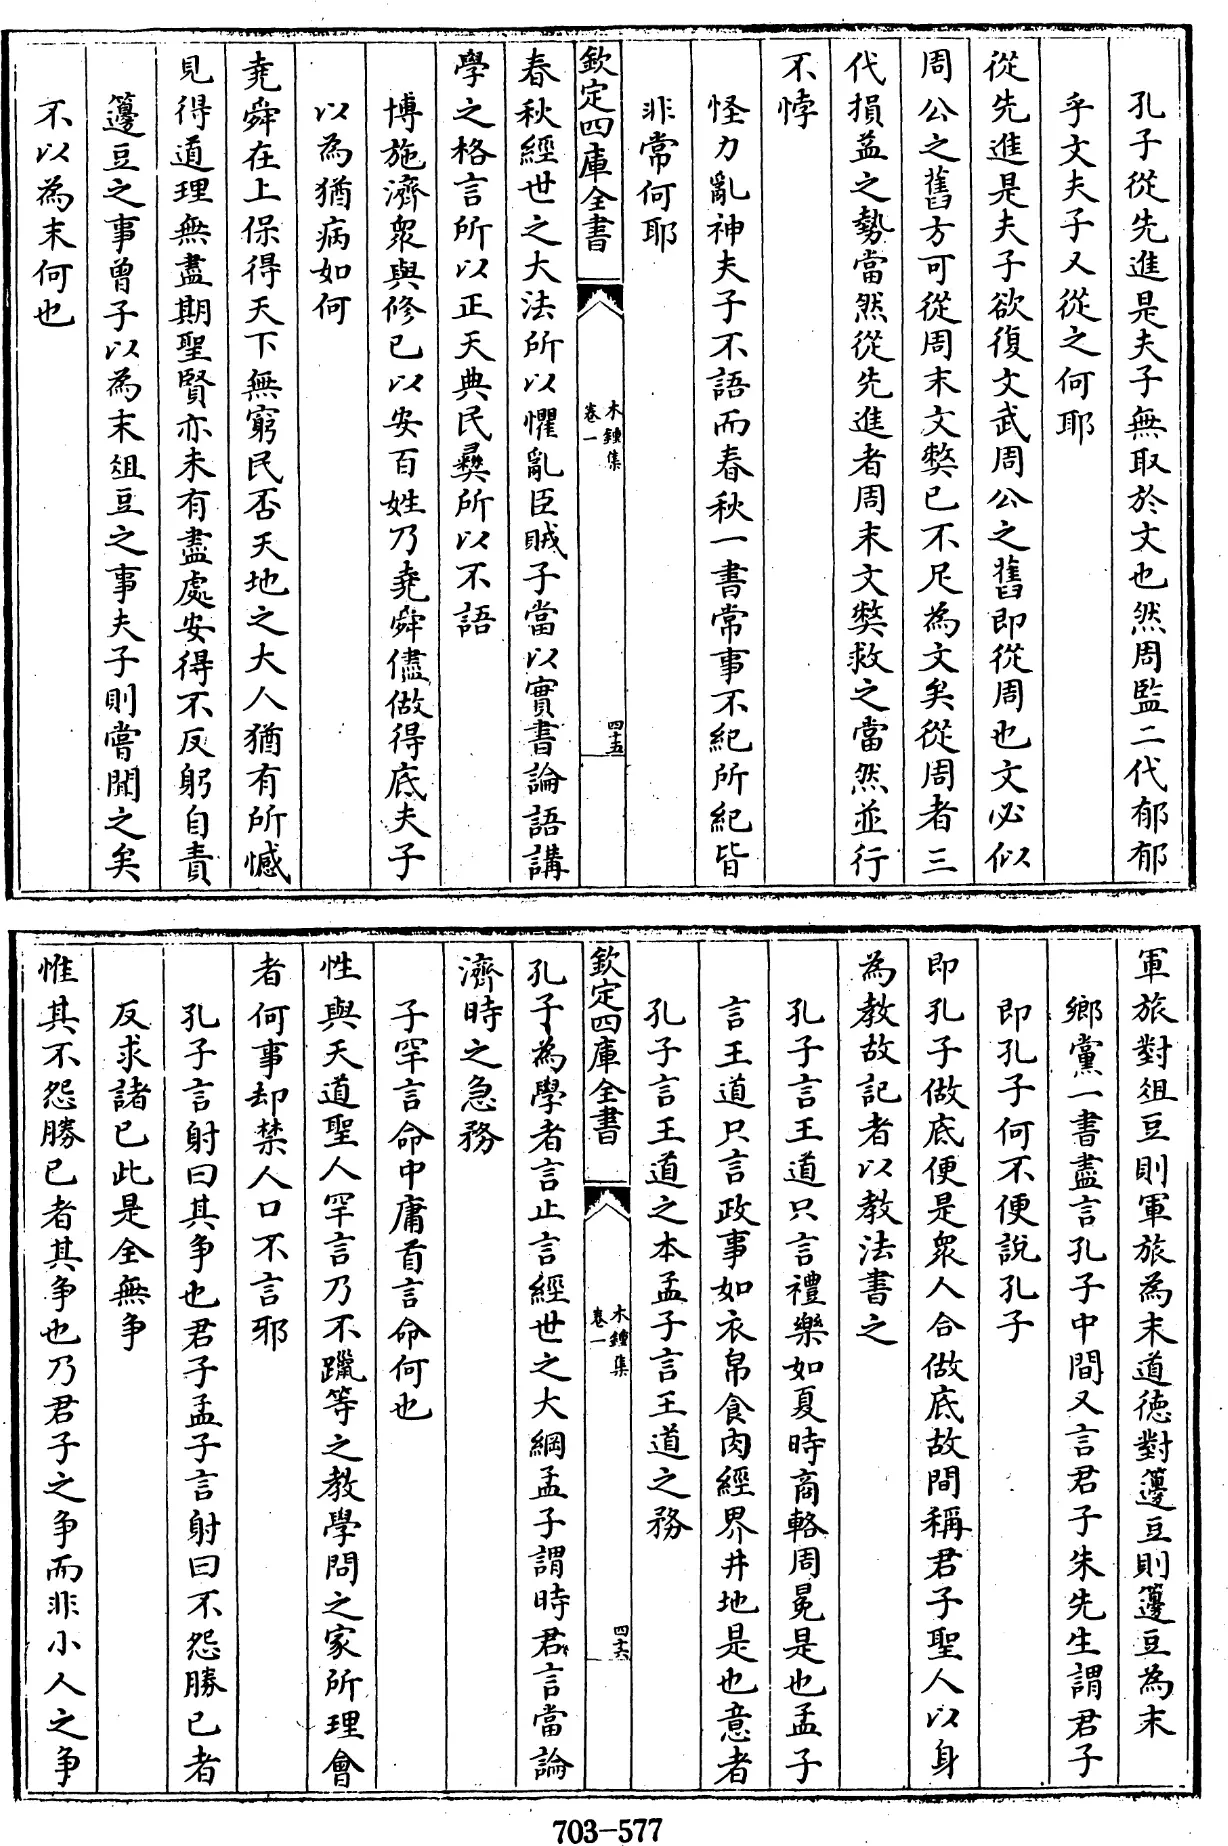 孔子從先進是夫子無取於文也然周監二代郁郁
乎文夫子又從之何耶
從先進是夫子欲復文武周公之舊即從周也文必似
周公之舊方可從周末文弊已不足為文矣從周者三
代損益之勢當然從先進者周末文弊救之當然並行
不悖
怪力亂神夫子不語而春秋一書常事不紀所紀皆
非常何耶
欽定四庫全書
木鍾集
卷一
四十五
春秋經世之大法所以懼亂臣賊子當以實書論語講
學之格言所以正天典民彞所以不語
博施濟衆與修已以安百姓乃堯舜儘做得底夫子
以為猶病如何
堯舜在上保得天下無窮民否天地之大人猶有所憾
見得道理無盡期聖賢亦未有盡處安得不反躬自責
籩豆之事曾子以為末俎豆之事夫子則嘗聞之矣
不以為末何也
軍旅對俎豆則軍旅為末道德對籩豆則籩豆為末
鄉黨一書盡言孔子中間又言君子朱先生謂君子
即孔子何不便說孔子
即孔子做底便是衆人合做底故間稱君子聖人以身
為教故記者以教法書之
孔子言王道只言禮樂如夏時商輅周冕是也孟子
言王道只言政事如衣帛食肉經界井地是也意者
孔子言王道之本孟子言王道之務
欽定四庫全書
木鍾集
卷一
四十六
孔子為學者言止言經世之大綱孟子謂時君言當論
濟時之急務
子罕言命中庸首言命何也
性與天道聖人罕言乃不躐等之教學問之家所理會
者何事却禁人口不言邪
孔子言射曰其爭也君子孟子言射曰不怨勝已者
反求諸已此是全無爭
惟其不怨勝已者其爭也乃君子之爭而非小人之爭
703-577